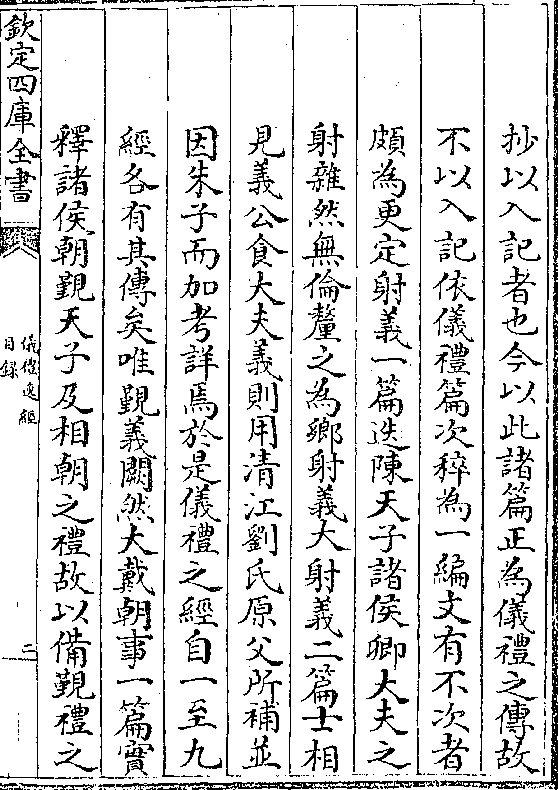 抄以入記者也今以此諸篇正為儀禮之傳故
不以入記依儀禮篇次稡為一編文有不次者
頗為更定射義一篇迭陳天子諸侯卿大夫之
射雜然無倫釐之為鄉射義大射義二篇士相
見義公食大夫義則用清江劉氏原父所補並
因朱子而加考詳焉於是儀禮之經自一至九
經各有其傳矣唯覲義闕然大戴朝事一篇實
釋諸侯朝覲天子及相朝之禮故以備覲禮之
欽定四庫全書
儀禮逸經
目録
二